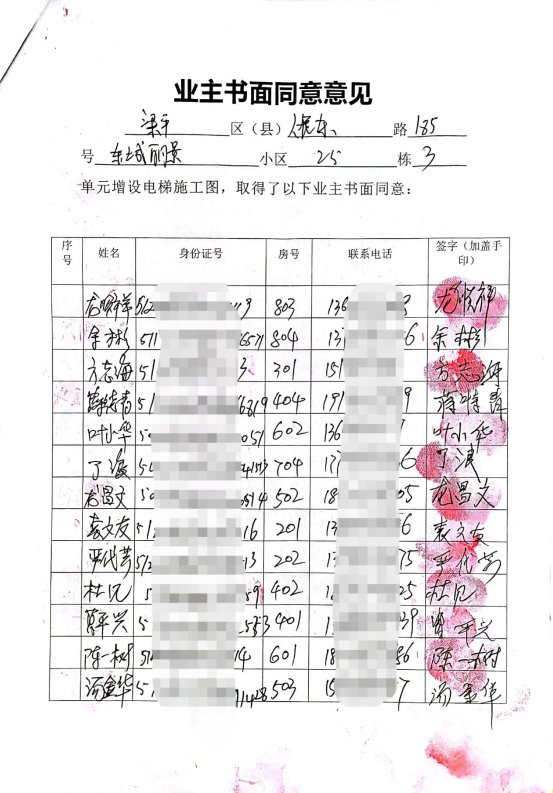 业主书面同意意见
梁平 区（县） 路 185
号 东城丽景 小区 25 栋 3
单元增设电梯施工图，取得了以下业主书面同意：
序号 姓名 身份证号 房号 联系电话 签字（加盖手印）
龙顺祥 512 9 803 136 3 龙顺祥
余彬 511 6571 804 13 6 余彬
方志海 51 3 301 151 方志海
蒋诗青 51 6819 404 191 9 蒋诗青
叶小华 50 057 602 136 叶小华
丁浪 50 704 17 6 丁浪
龙昌文 50 0514 502 18 05 龙昌文
袁文友 512 16 201 13 6 袁文友
平代芳 512 13 202 15 75 平代芳
杜凡 5 59 402 1 25 杜凡
5 253 401 1 39 平兴
陈一树 510 14 601 18 86 陈一树
汤金华 51 1428 503 15 7 汤金华